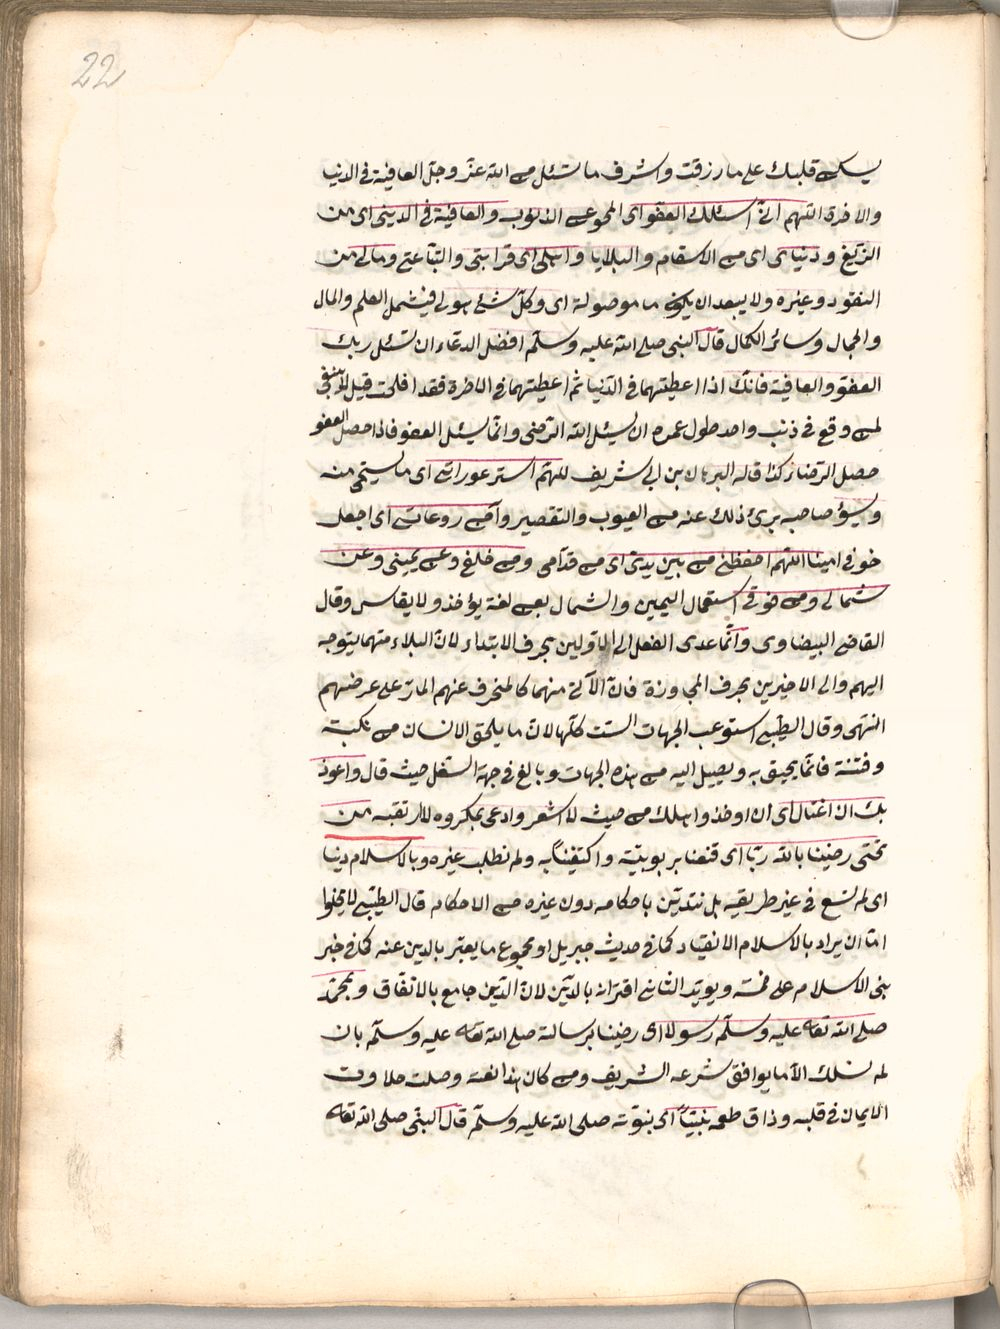 22
يسكن قلبك على ما رزقت واشرف ما تسئل من الله عز وجل العافية فى الدنيا
والاخرة اللهم انى اسئلك العفو اى المحو عن الذنوب والعافية فى الدينى اى من
الزيغ ودنياى اى من الاسقام والبلايا واهلى اى قرابتى والتباعتى ومالى من
النقود وغيره ولا يبعد ان يكون ما موصولة اى وكل شئ هو لى فيشمل العلم والمال
والجمال وسائر الكمال قال النبى صلى الله عليه وسلم افضل الدعاء ان تسئل ربك
العفو والعافية فانك اذا اعطيتهما فى الدنيا ثم اعطيتهما فى الاخرة فقد افلحت قيل لا ينبغى
لمن وقع فى ذنب واحد طول عمره ان يسئل الله الرضى وانما يسئل العفو فاذا حصل العفو
حصل الرضاء كذا قاله البرهان بن ابى شريف اللهم استر عوراتى اى ما يستحى منه
ويسؤ صاحبه يرئ ذلك عنه من العيوب والتقصير وآمن روعاتى اى اجعل
خوفى امينا اللهم احفظنى من بين يدى اى من قدامى ومن خلفى وعن يمينى وعن
شمالى ومن فوقى استعمال اليمين والشمال بعن لغة يؤخذ ولا يقاس وقال
القاضى البيضاوى وانما عدى الفعل الى الاولين بحرف الابتداء لان البلاء منهما يتوجه
اليهم والى الاخيرين بحرف المجاوزة فان الآتى منهما كالمنحرف عنهم المار على عرضهم
انتهى وقال الطيبى استوعب الجهات الست كلها لان ما يلحق الانسان من نكبة
وفتنة فانما يحيق به ويصيل اليه من هذه الجهات وبالغ فى جهة السفل حيث قال واعوذ
بك ان اغتال اى ان اوخذ واهلك من حيث لا اشعر وادعى بمكروه لا ارتقبه من
تحتى رضينا بالله ربا اى قنعنا بربوبيته واكتفينا به ولم نطلب غيره وبالاسلام دينا
اى لم نسع فى غير طريقه بل نتدين باحكامه دون غيره من الاحكام قال الطيبى لا يخلوا
اما ان يراد بالاسلام الانقياد كما فى حديث جبريل او مجموع ما يعبر بالدين عنه كما فى خبر
بنى الاسلام على خمسة ويؤيد الثانى اقترانه بالدين لان الدين جامع بالاتفاق وبمحمد
صلى الله تعالى عليه وسلم رسولا اى رضينا برسالته صلى الله تعالى عليه وسلم بان
لم نسلك الا ما يوافق شرعه الشريف ومن كان هذا نعته وصلت حلاوت
الايمان فى قلبه وذاق طعمه نبيا اى بنبوته صلى الله عليه وسلم قال النبى صلى الله تعالى